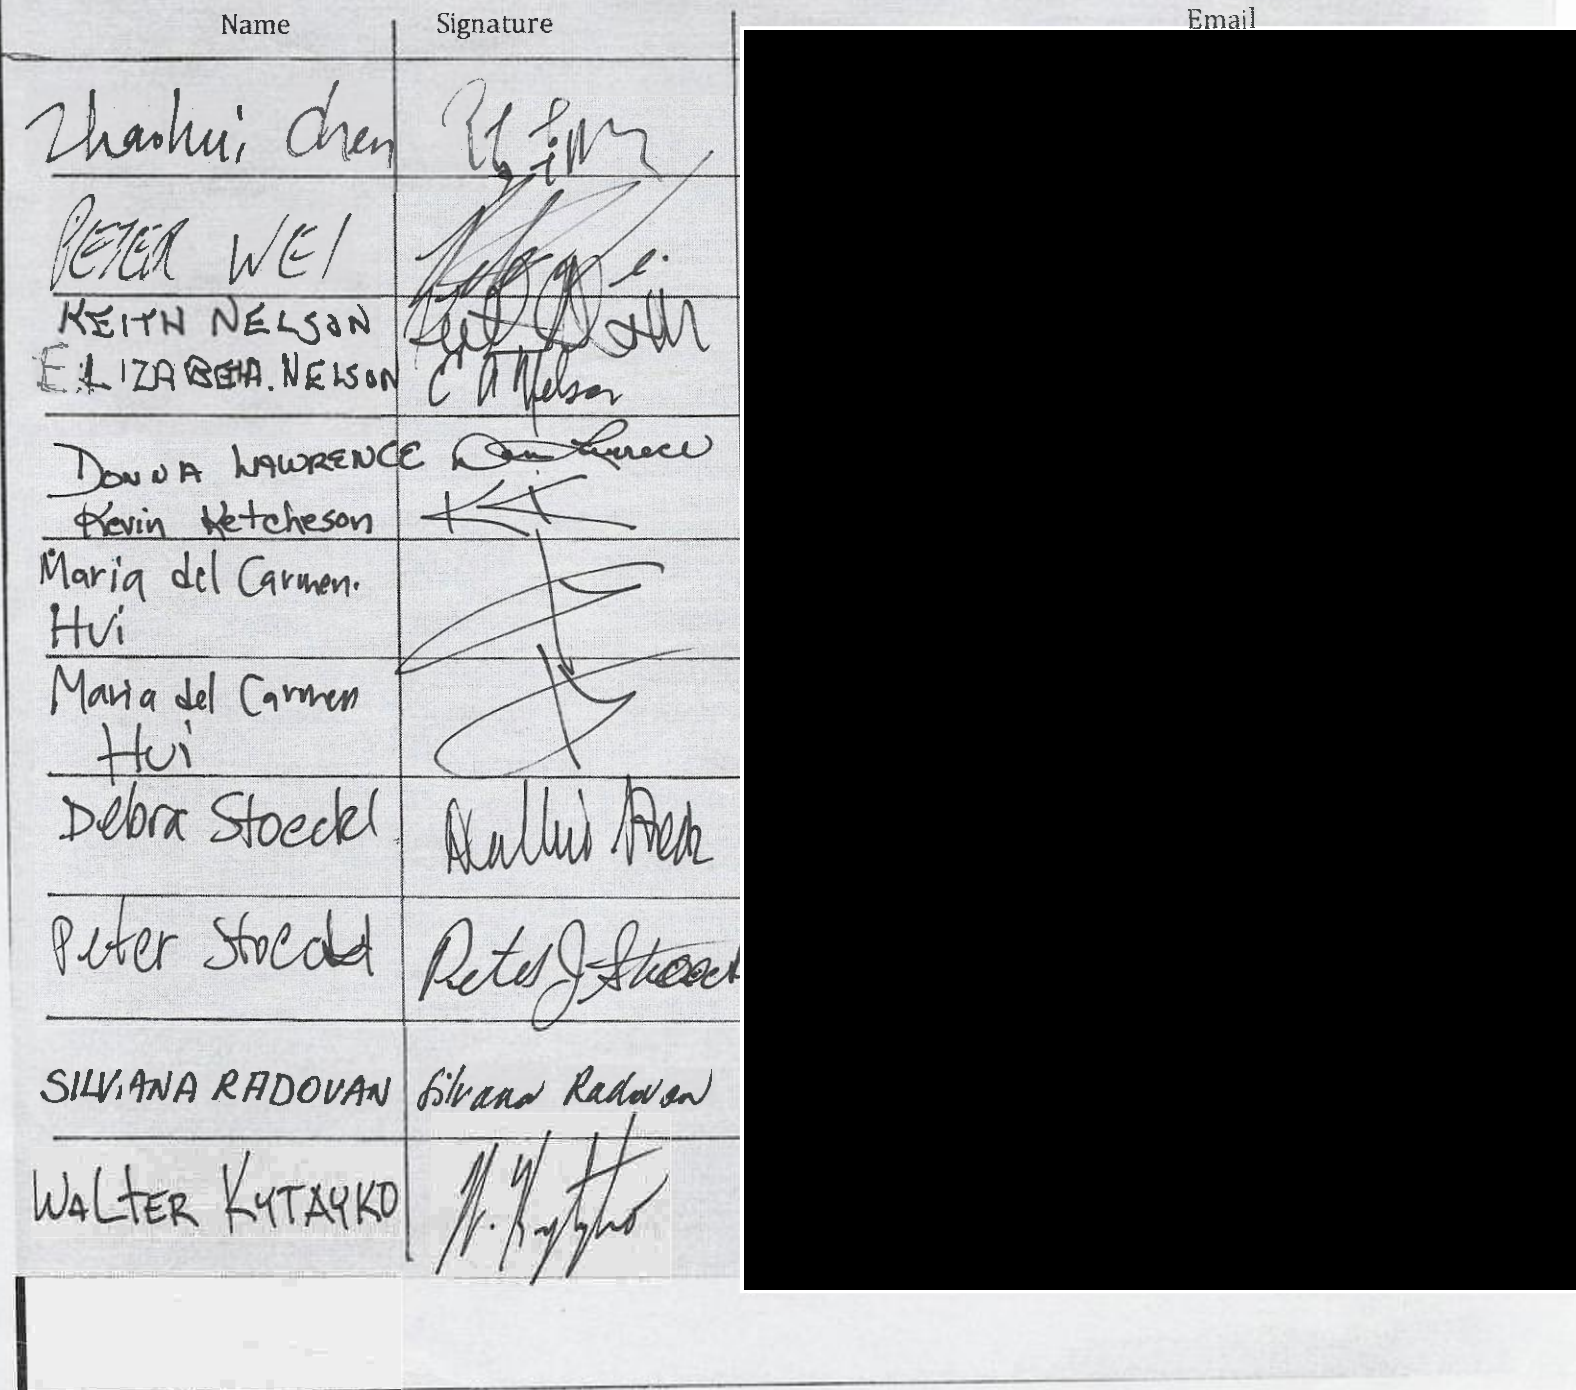 Name Signature Email
Zhaohui Chen
PETER WEI
KEITH NELSON
ELIZABETH A. NELSON C A Nelson
DONNA LAWRENCE
Kevin Ketcheson KK
Maria del Carmen.
Hui
Maria del Carmen
Hui
Debra Stoeckl
Peter Stoeckl Peter J Stoeck
SILVIANA RADOVAN Silvana Radovan
WALTER KYTAYKO W. Kytayko